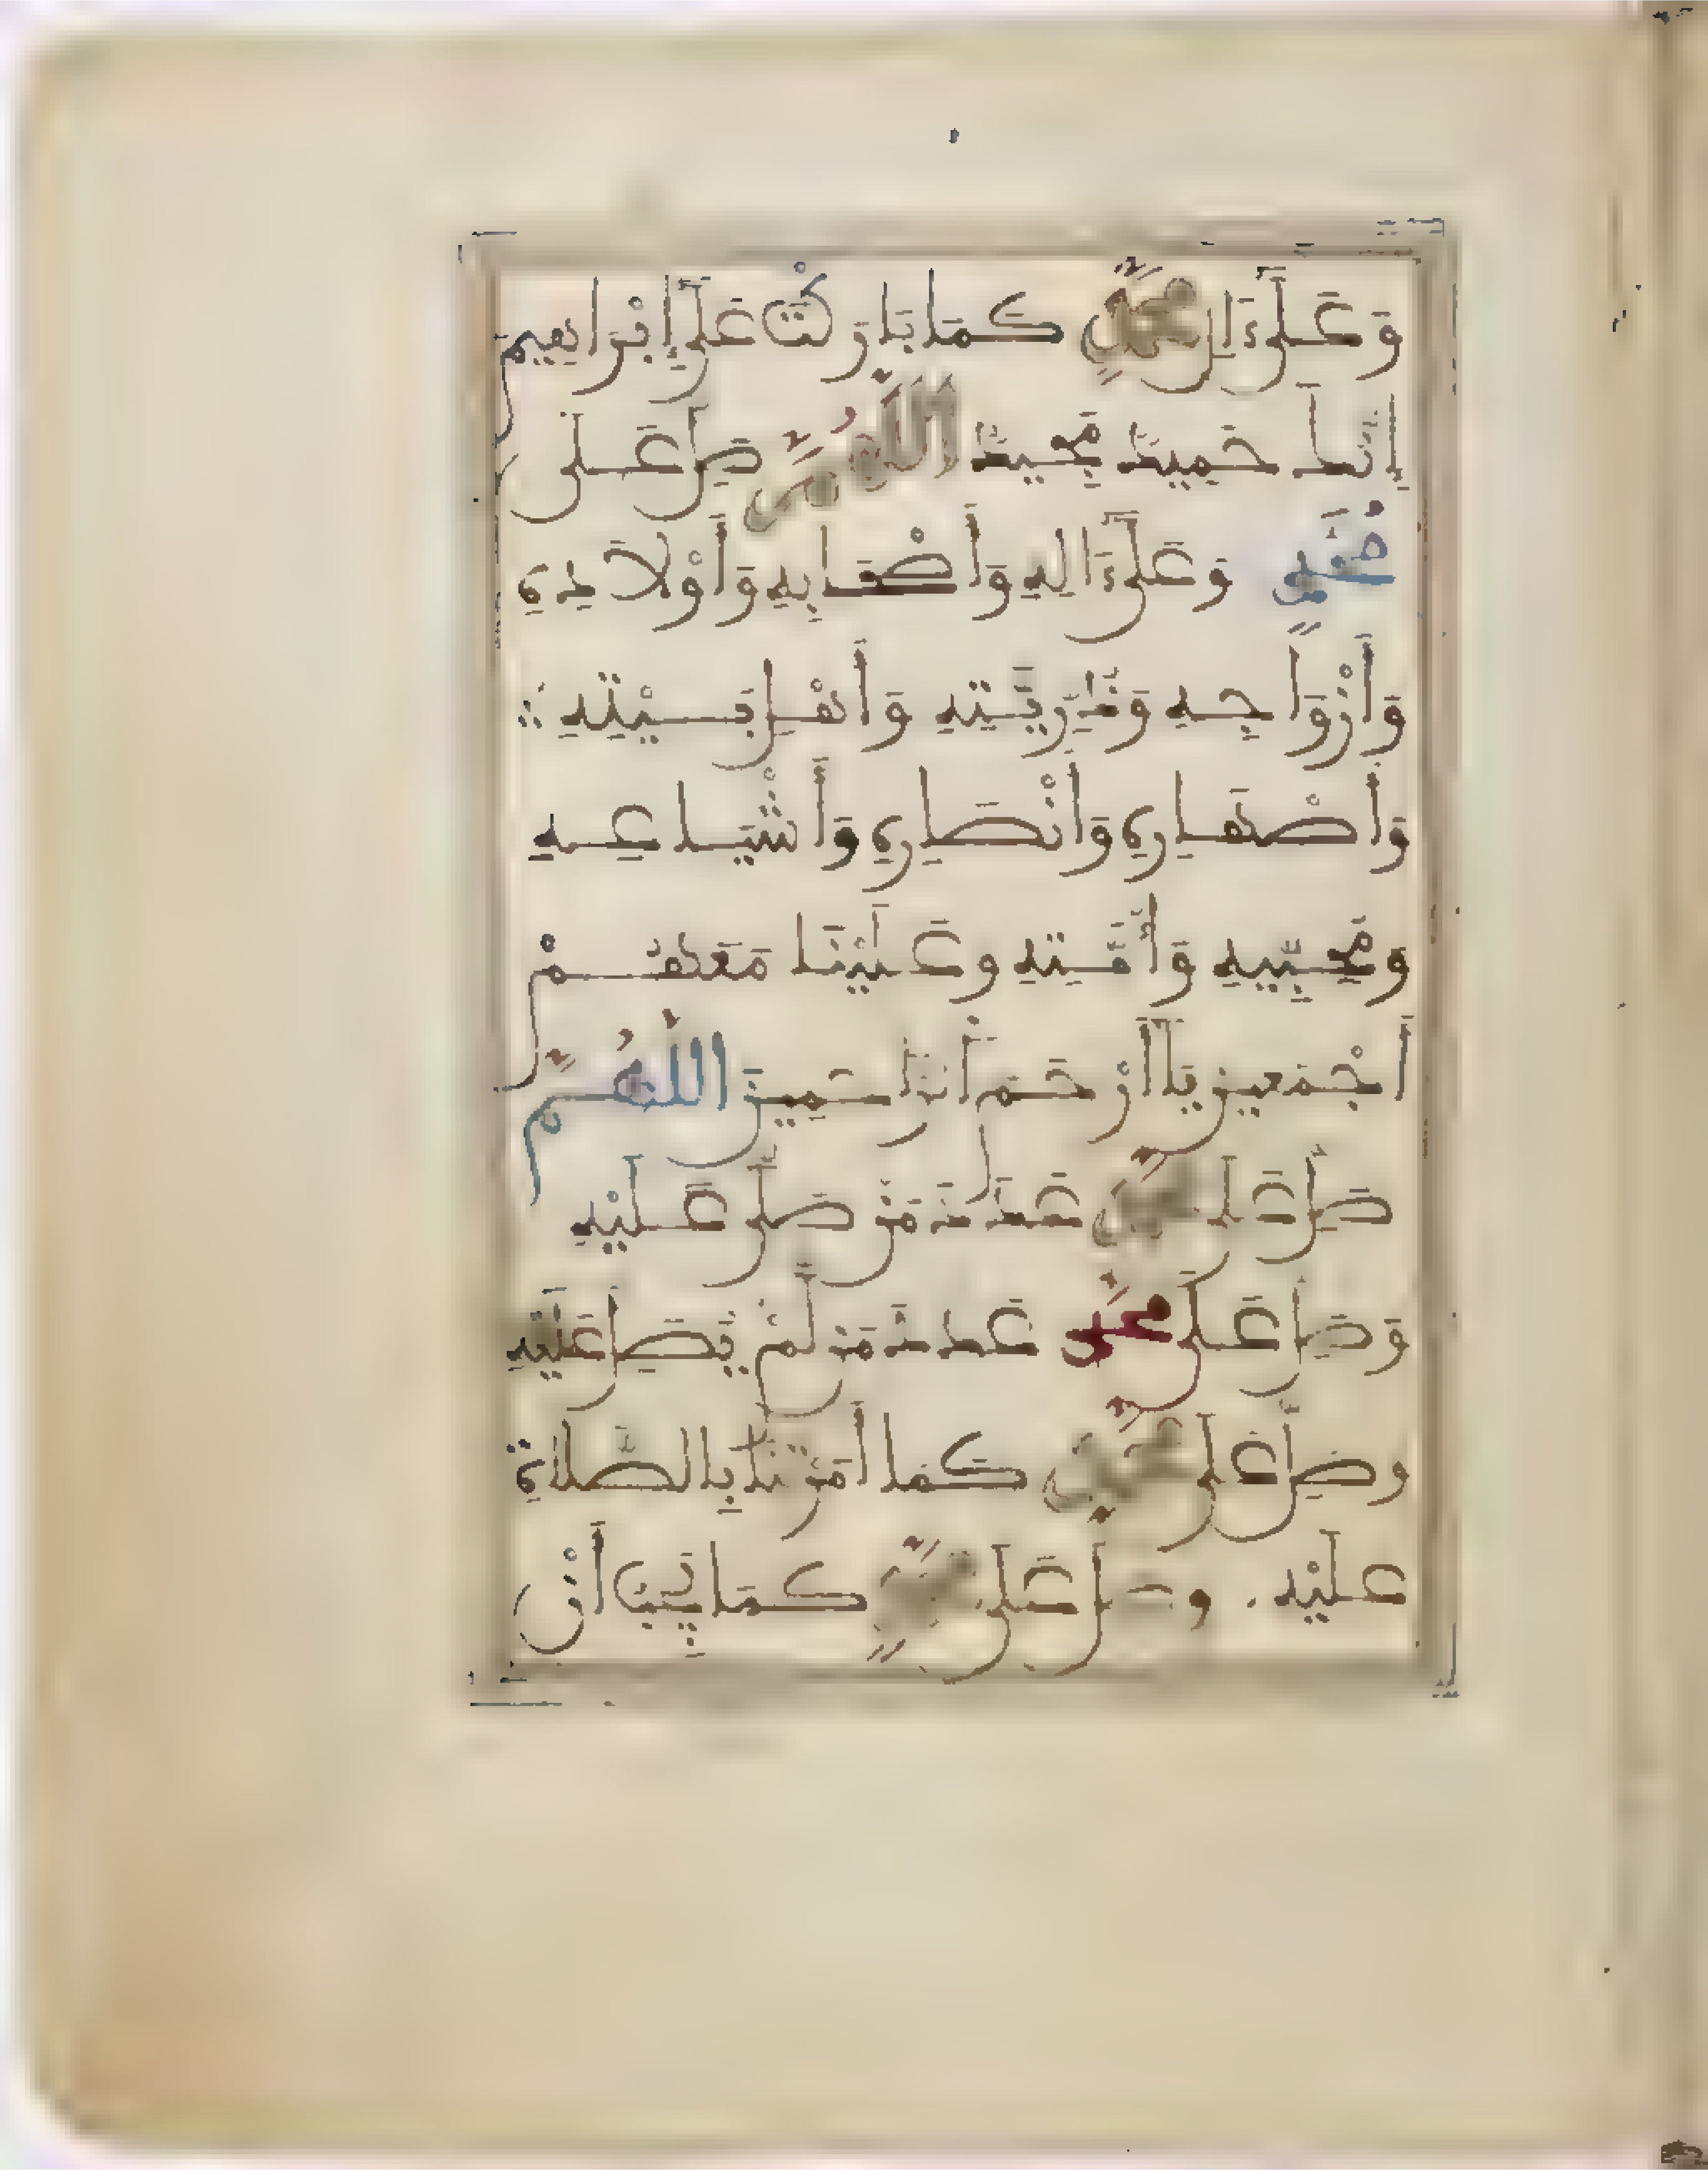 وَعَلَىٰ ءَالِ مُحَمَّدٍ كَمَا بَارَكْتَ عَلَىٰ إِبْرَاهِيمَ
إِنَّكَ حَمِيدٌ مَّجِيدٌ اللَّهُمَّ صَلِّ عَلَىٰ
مُحَمَّدٍ وَعَلَىٰ ءَالِهِ وَأَصْحَابِهِ وَأَوْلَادِهِ
وَأَزْوَاجِهِ وَذُرِّيَّتِهِ وَأَهْلِ بَيْتِهِ
وَأَصْهَارِهِ وَأَنْصَارِهِ وَأَشْيَاعِهِ
وَمُحِبِّيهِ وَأُمَّتِهِ وَعَلَيْنَا مَعَهُمْ
أَجْمَعِينَ يَا أَرْحَمَ الرَّاحِمِينَ اللَّهُمَّ
صَلِّ عَلَىٰ مُحَمَّدٍ عَدَدَ مَنْ صَلَّىٰ عَلَيْهِ
وَصَلِّ عَلَىٰ مُحَمَّدٍ عَدَدَ مَن لَّمْ يُصَلِّ عَلَيْهِ
وَصَلِّ عَلَىٰ مُحَمَّدٍ كَمَا أَمَرْتَنَا بِالصَّلَاةِ
عَلَيْهِ وَصَلِّ عَلَىٰ مُحَمَّدٍ كَمَا يُحِبُّ أَنْ